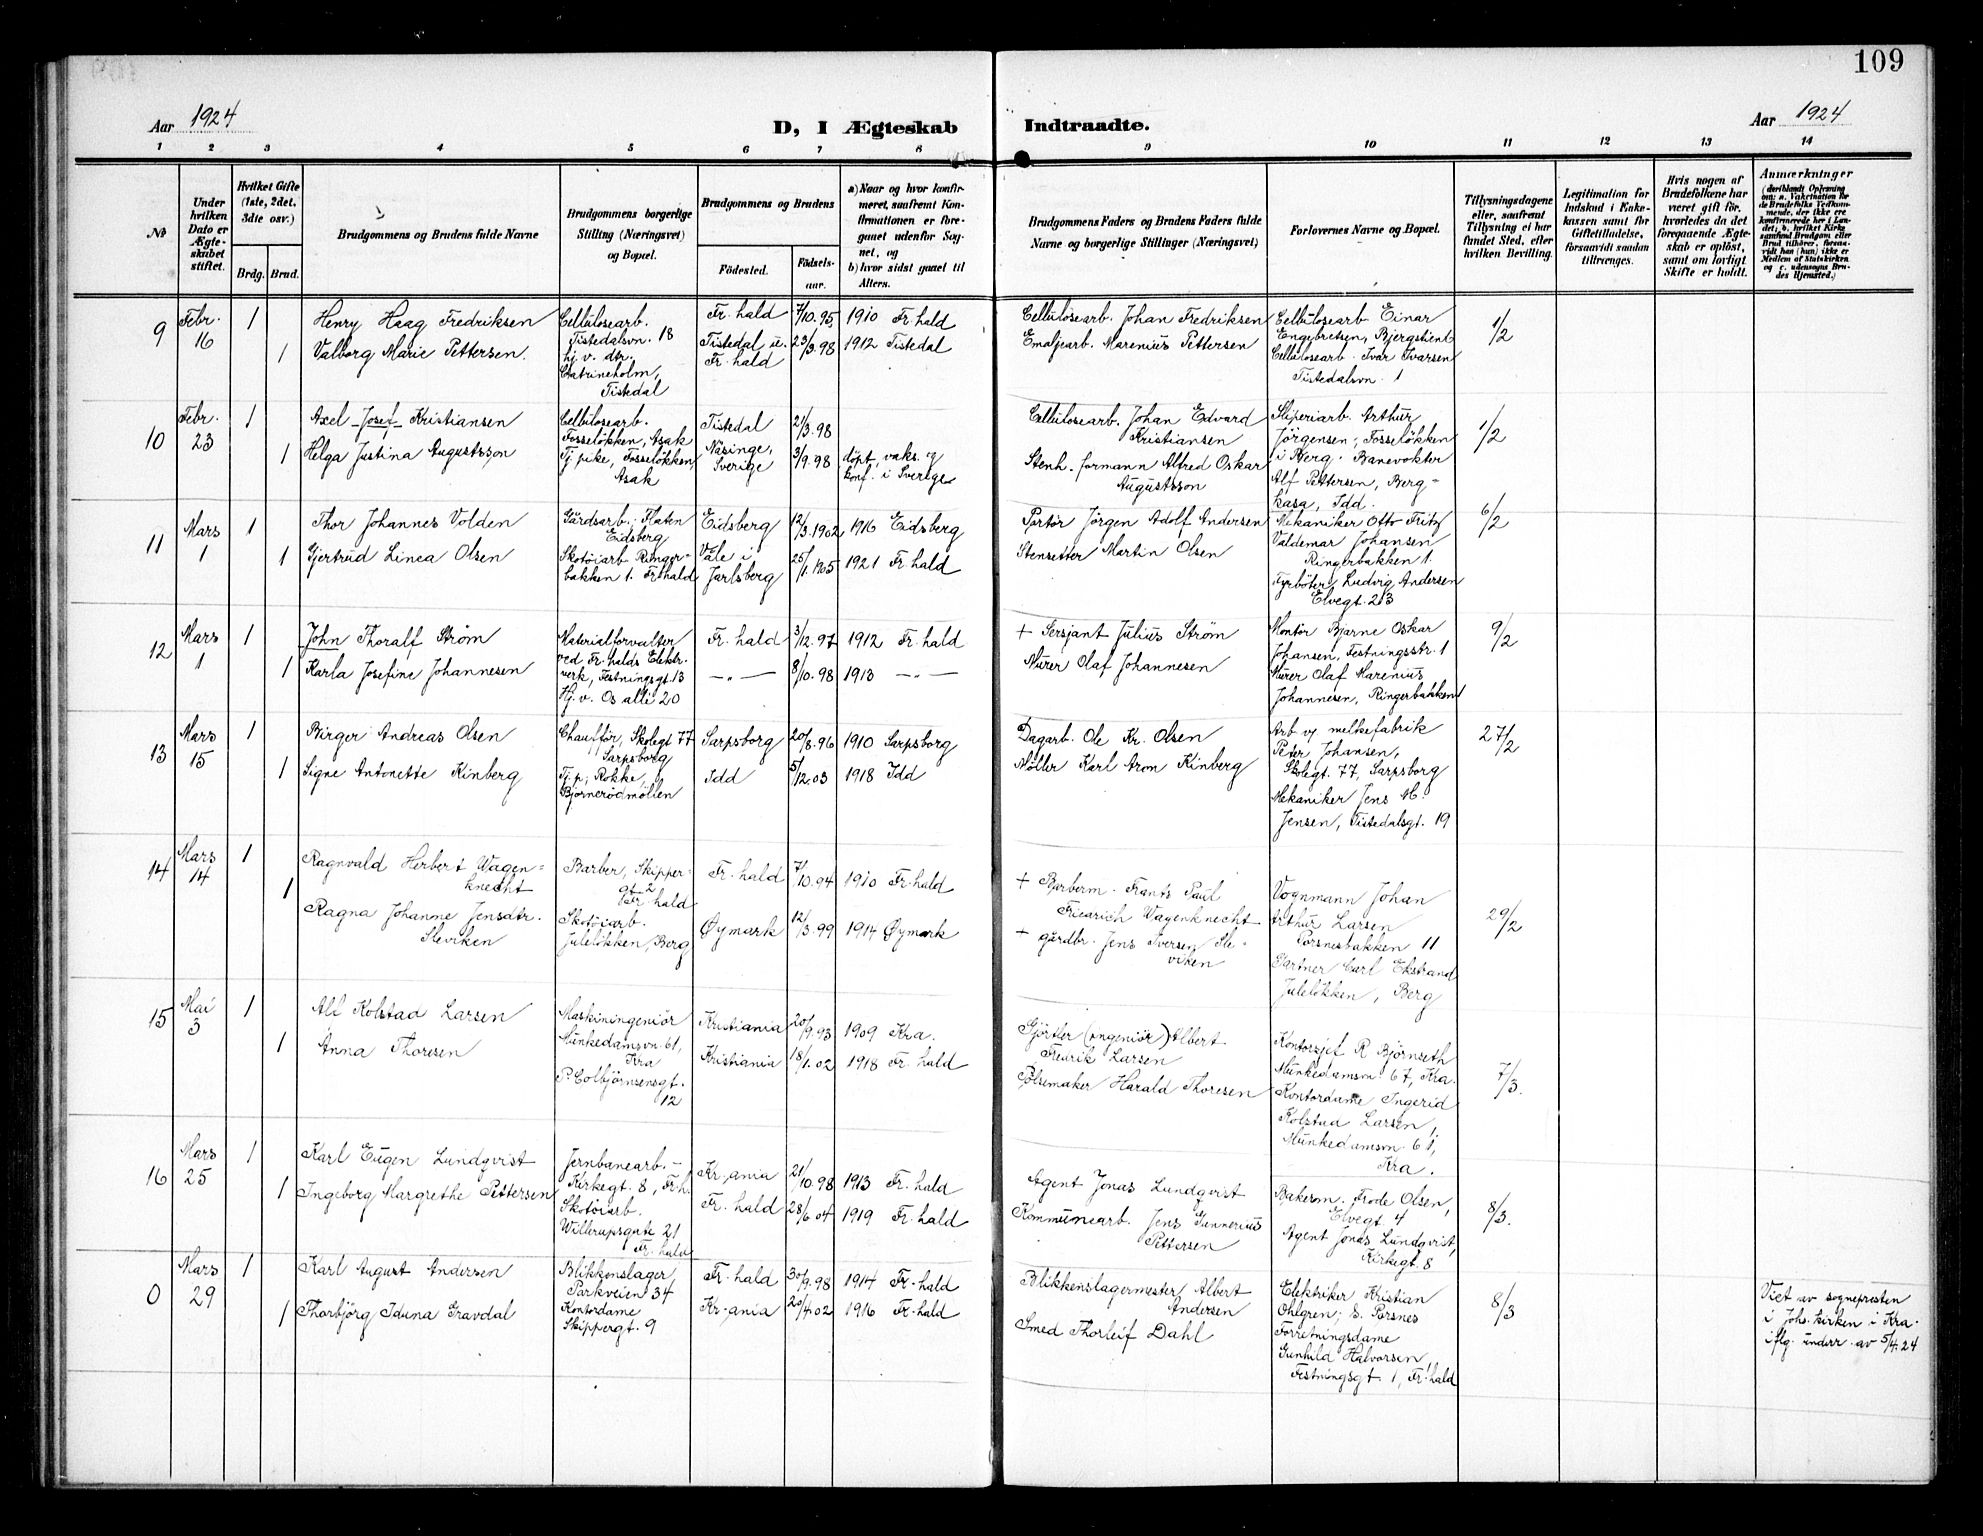 109
Aar 1924
D, I Ægteskab Indtraadte.
Aar 1924
1 2 3 4 5 6 7 8 9 10 11 12 13 14
No
Under hvilken Dato er Ægteskabet stiftet.
Hvilket Gifte (1ste, 2det, 3die osv.)
Brdg. Brud.
Brudgommens og Brudens fulde Navne
Brudgommens borgerlige Stilling (Næringsvei) og Bopæl.
Brudgommens og Brudens
Födested. Födselsaar.
a) Naar og hvor konfirmeret, saafremt Konfirmationen er foregaaet udenfor Sognet, og
b) hvor sidst gaaet til Alters.
Brudgommens Faders og Brudens Faders fulde Navne og borgerlige Stillinger (Næringsvei)
Forlovernes Navne og Bopæl.
Tillysningsdagene eller, saafremt Tillysning ei har fundet Sted, efter hvilken Bevilling.
Legitimation for Indskud i Enkekassen samt for Giftetilladelse, forsaavidt saadan tiltrænges.
Hvis nogen af Brudefolkene har været gift før, hvorledes da det foregaaende Ægteskab er oplöst, samt om lovligt Skifte er holdt.
Anmærkninger
9 Febr. 16 1
Henry Haag Fredriksen
Cellulosearb. Tistedalsvn. 18
Fr.hald 7/10.95 1910 Fr.hald
Cellulosearb. Johan Fredriksen
Cellulosearb Einar Engebretsen, Bjergstient
1/2
1 Valborg Marie Pettersen.
hj. v. dtr. Catrineholm, Tistedal
Tistedal u. Fr.hald 23/3.98 1912 Tistedal
Emaljearb. Marenius Pettersen
Cellulosearb. Ivar Ivarsen Tistedalsvn. 1
10 Febr. 23 1
Axel Josef Kristiansen
Cellulosearb. Fosseløkken, Asak
Tistedal 2/3.98
Cellulosearb. Johan Edvard Kristiansen
Sliperiarb. Arthur Jörgensen, Fosselökken i Berg.
1/2
1 Helga Justina Augustsson
Tj.pike, Fosselökken Asak
Näsinge, Sverige 3/9.98 döpt, vaks. og konf. i Sverige
Stenh.formann Alfred Oskar Augustsson
Banevokter Alf Pettersen, Berg= kasa, Idd.
11 Mars 1 1
Thor Johannes Volden
Gårdsarb., Flaten Eidsberg
Eidsberg 12/3.1902 1916 Eidsberg
Portör Jörgen Adolf Andersen
Mekaniker Otto Fritz Valdemar Johansen Ringerbakken 1.
6/2
1 Gjertrud Linea Olsen
Skotöiarb Ringerbakken 1. Fr.hald
Våle i Jarlsberg 25/1.1905 1921 Fr.hald
Stensetter Martin Olsen
Fyrböter, Ludvig Andersen Elvegt. 23
12 Mars 1 1
John Thoralf Strøm
Materialforvalter ved Fr.halds Elektr. verk, Festningsgt. 13
Fr.hald 3/12.97 1912 Fr.hald
+ Sersjant Julius Strøm
Montör Bjarne Oskar Johansen, Festningsstr. 1
9/2
1 Karla Josefine Johannesen
Hj. v. Os allé 20
—„— 8/10.98 1913 —„—
Murer Olaf Johannesen
Murer Olaf Marenius Johannesen, Ringerbakken 1
13 Mars 15 1
Birger Andreas Olsen
Chauffør, Skolegt 77 Sarpsborg
Sarpsborg 20/8.96 1910 Sarpsborg
Dagarb. Ole Kr. Olsen
Arb v/ melkefabrik Peter Johansen, Skolegt. 77, Sarpsborg
27/2
1 Signe Antonette Kinberg
Tj.p; Rokke, Bjørnerødmøllen
Idd 5/12.03 1918 Idd
Møller Karl Aron Kinberg
Mekaniker Jens M. Jensen, Tistedalsgt. 19
14 Mars 14 1
Ragnvald Herbert Wagenknecht
Barber, Skippergt 2 Fr.hald
Fr.hald 7/10.94 1910 Fr.hald
+ Barberm. Frants Paul Friedrich Wagenknecht
Vognmann Johan Arthur Larsen Porsnesbakken 11
29/2
1 Ragna Johanne Jensdtr. Sleviken
Skotöiarb. Juleløkken, Berg
Øymark 12/3.99 1914 Øymark
+ gårdbr. Jens Iversen Sleviken
Gartner Carl Ekstrand Juleløkken, Berg
15 Mai 3 1
Alf Kolstad Larsen
Maskiningeniör Munkedamsvn. 61, Kra
Kristiania 20/9.93 1909 Kra.
Gjörtler (ingeniör) Albert Fredrik Larsen
Kontorsjef R Björnseth Munkedamsvn. 67, Kra.
7/3.
1 Anna Thoresen
P. Colbjörnsensgt. 12
Kristiania 18/1.02 1918 Fr.hald
Pölsemaker Harald Thoresen
Kontordame Ingerid Kolstad Larsen, Munkedamsvn. 61, Kra.
16 Mars 25 1
Karl Eugen Lundqvist
Jernbanearb. Kirkegt. 8, Fr.h.
Kr.ania 21/10.98 1913 Fr.hald
Agent Jonas Lundqvist
Bakerm. Frode Olsen, Elvegt 4
8/3.
1 Ingeborg Margrethe Pettersen
Skotöiarb. Willerupsgate 21 Fr.hald
Fr.hald 28/6.04 1919 Fr.hald
Kommunearb. Jens Gunnerius Pettersen
Agent Jonas Lundqvist, Kirkegt. 8
0 Mars 29 1
Karl August Andersen
Blikkenslager Parkveien 34
Fr.hald 30/9.98 1914 Fr.hald
Blikkenslagermester Albert Andersen
Elektriker Kristian Ohlgren; S. Porsnes
8/3
Viet av sognepresten i Joh.kirken i Kra iflg. underr. av 5/4.24
1 Thorbjörg Iduna Gravdal
Kontordame Skippergt. 9
Kr.ania 20/4.02 1916 Fr.hald
Smed Thorleif Dahl
Forretningsdame Gunhild Halvorsen, Festningsgt. 1, Fr.hald